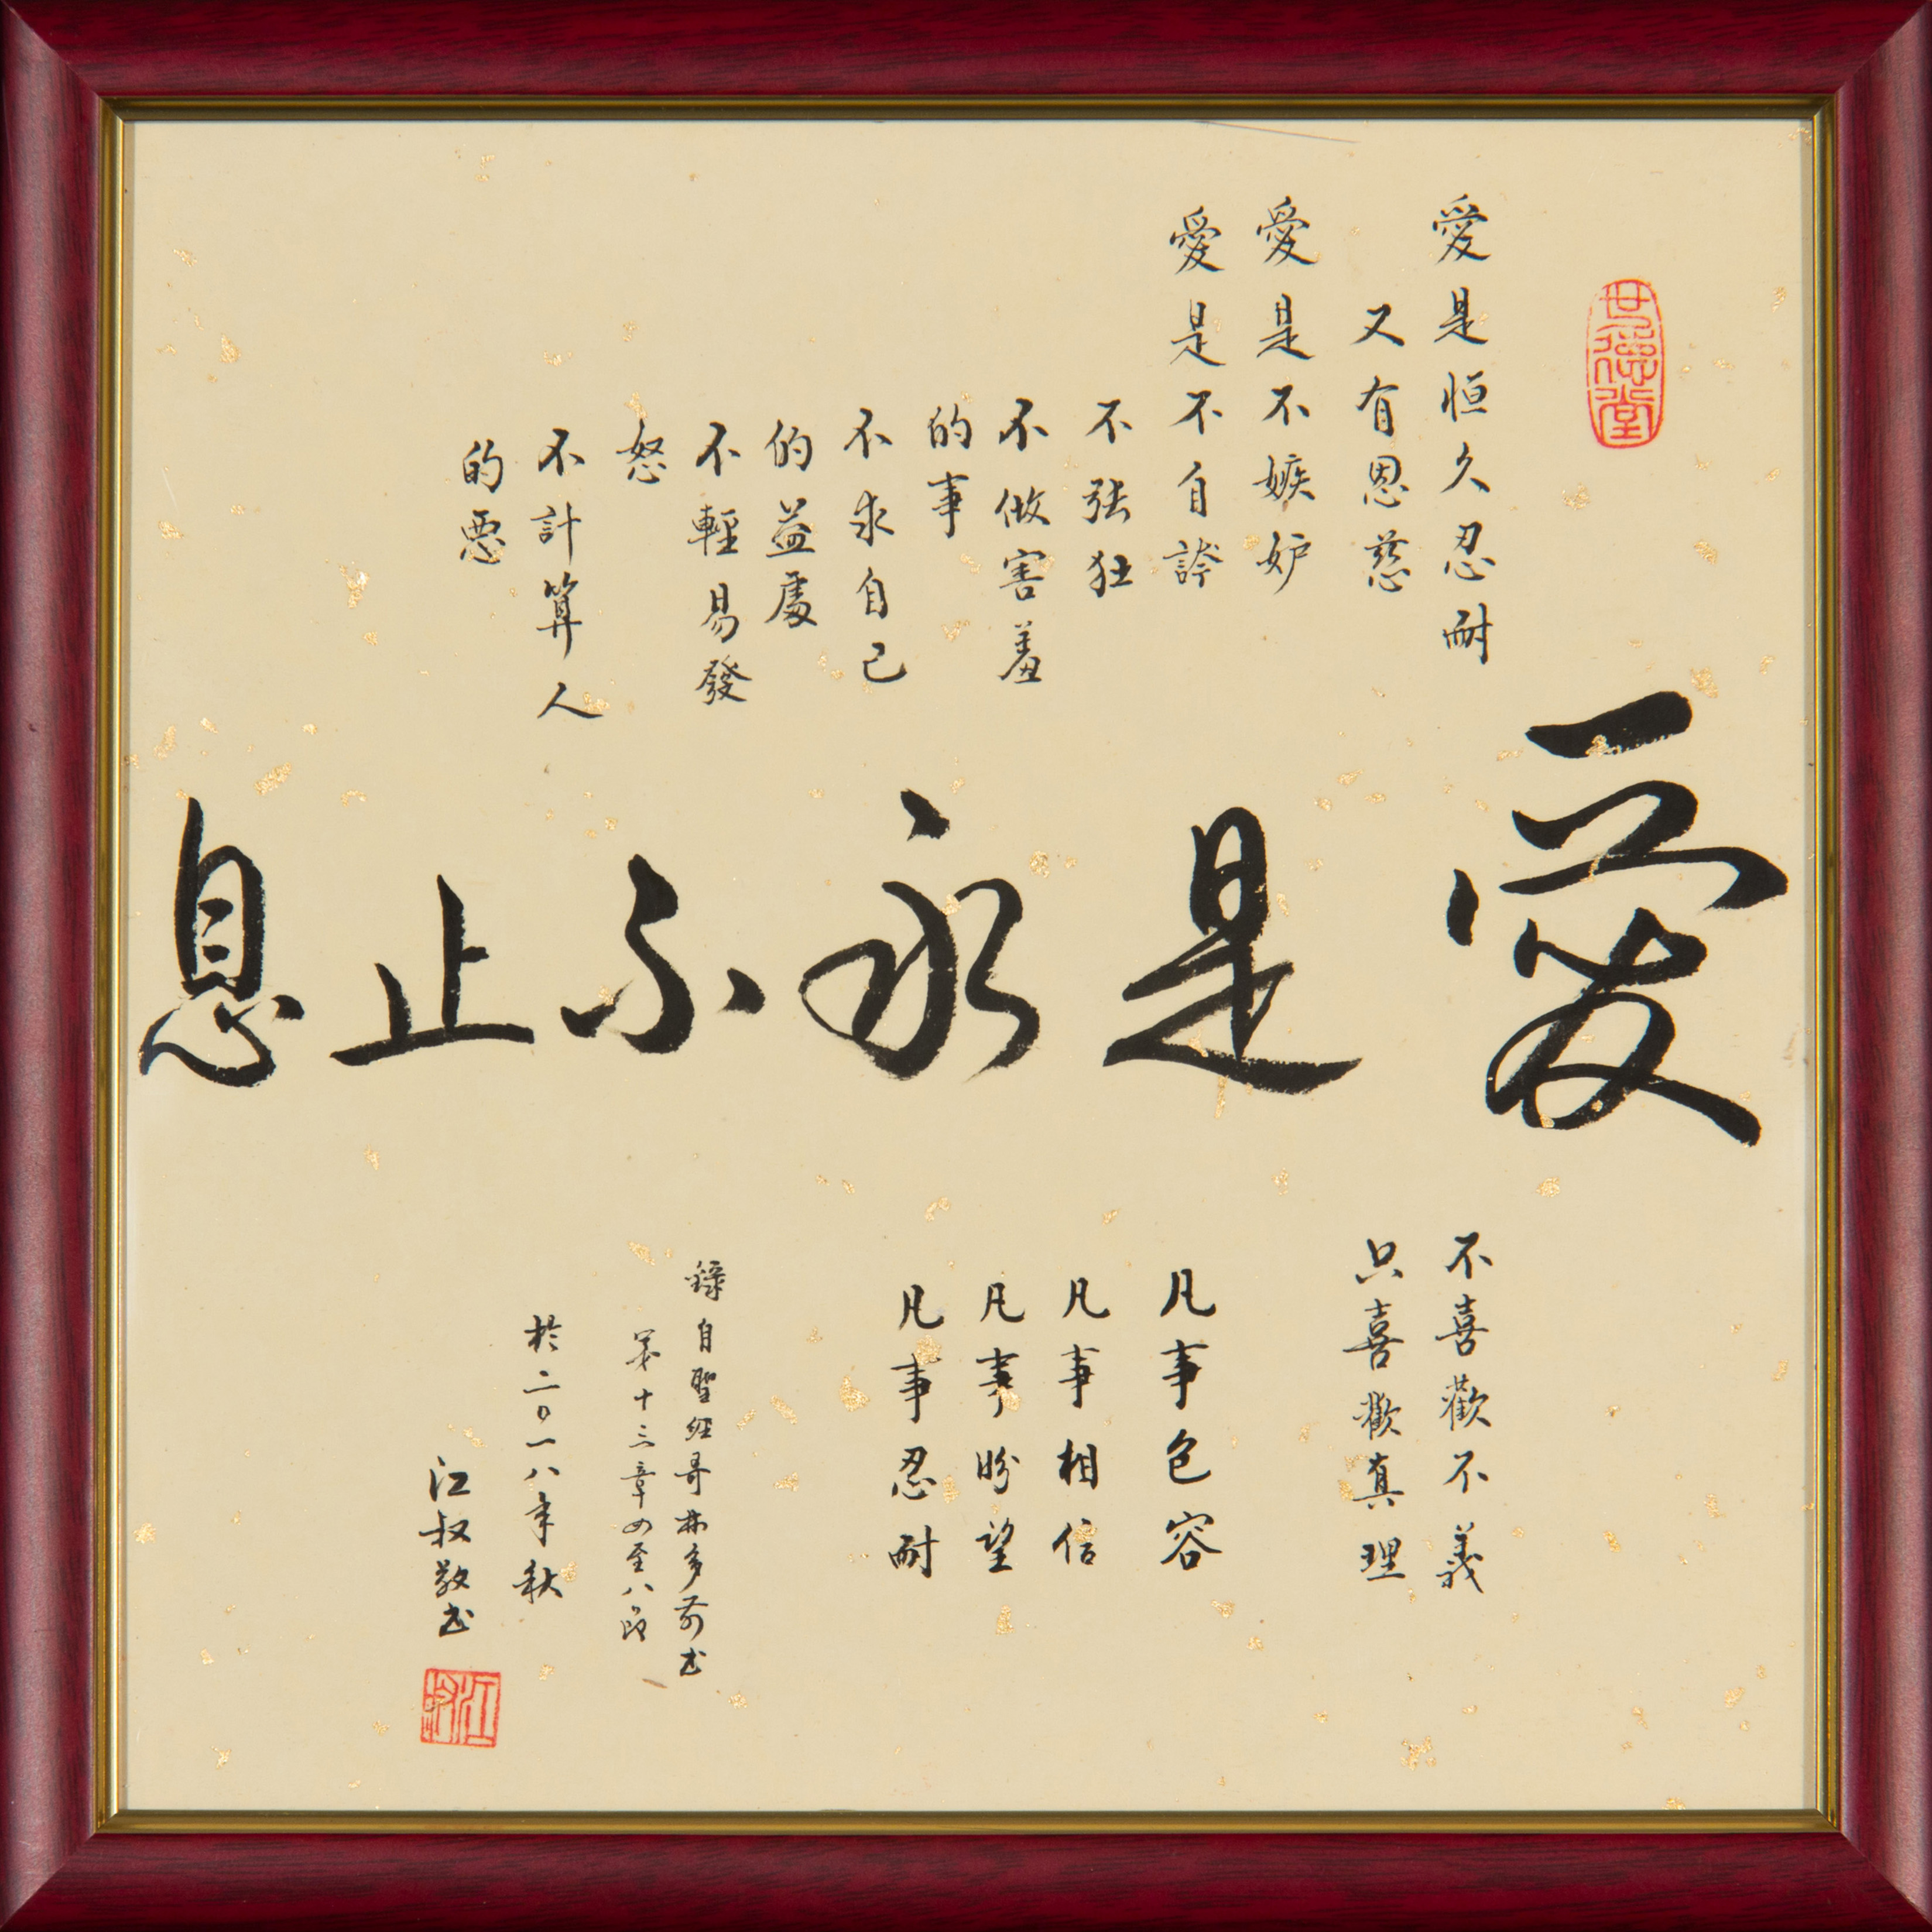 世德堂
愛是恒久忍耐
又有恩慈
愛是不嫉妒
愛是不自誇
不張狂
不做害羞
的事
不求自己
的益處
不輕易發
怒
不計算人
的惡
愛是永不止息
不喜歡不義
只喜歡真理
凡事包容
凡事相信
凡事盼望
凡事忍耐
錄自聖經哥林多前书
第十三章四至八節
於二〇一八年秋
江叔敬书